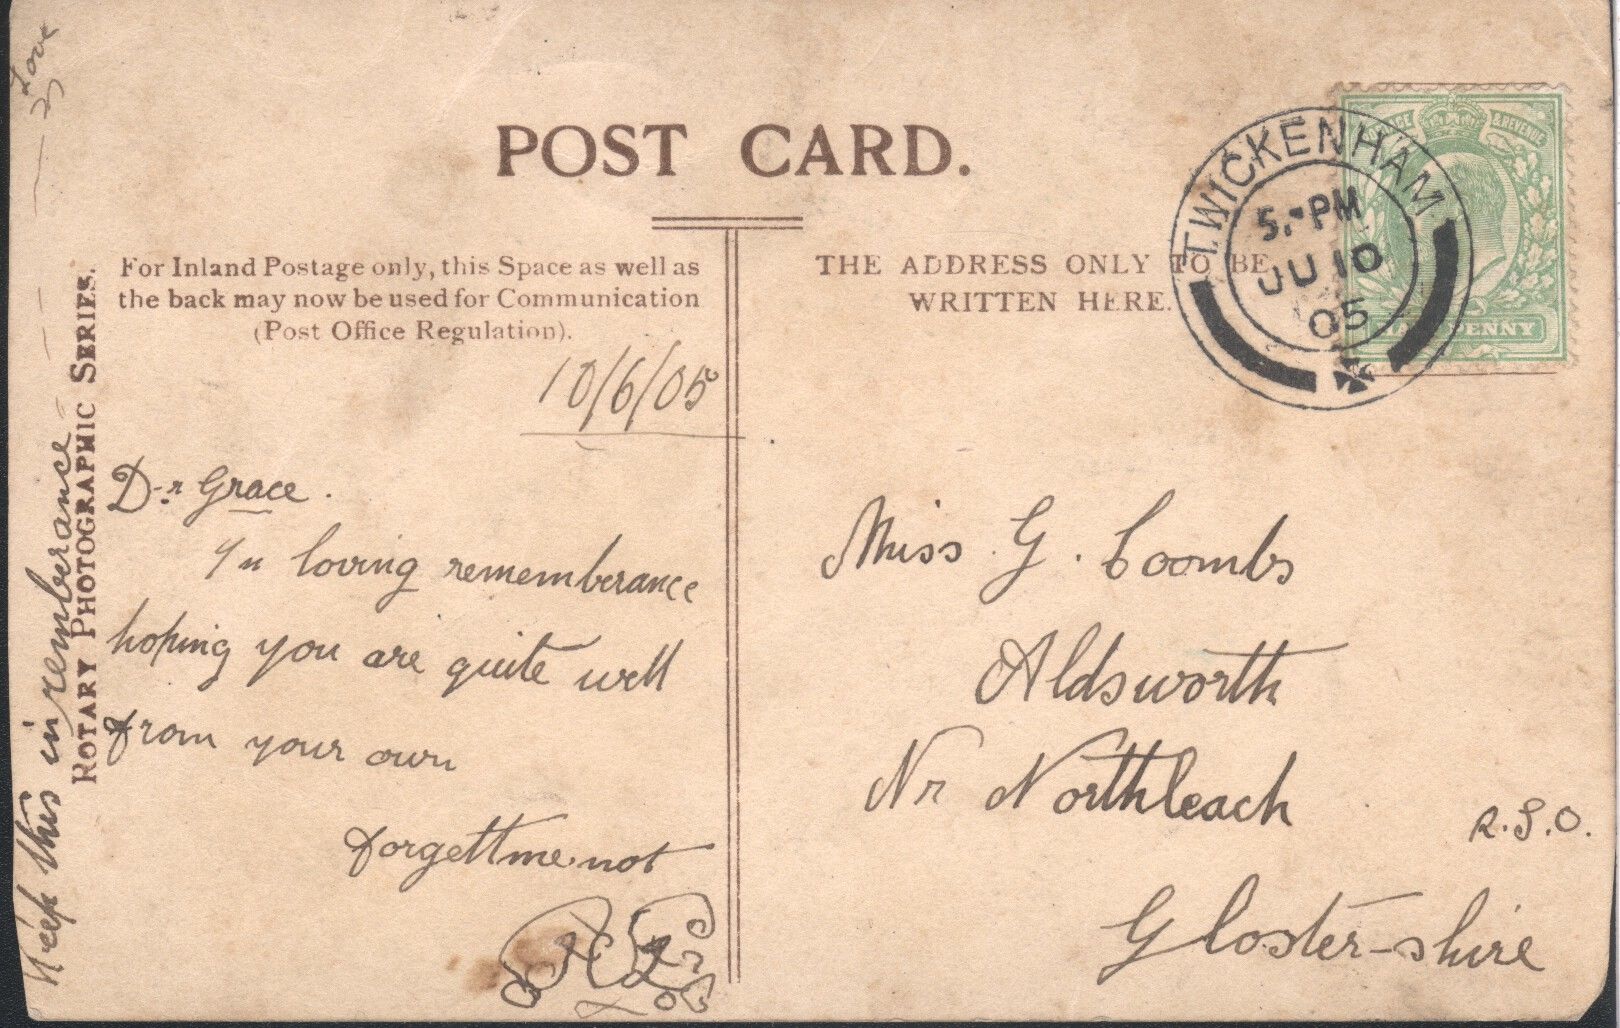 POST CARD.
For Inland Postage only, this Space as well as
the back may now be used for Communication
(Post Office Regulation).
THE ADDRESS ONLY TO BE
WRITTEN HERE.
TWICKENHAM
5. PM
JU 10
05
& REVENUE
HALFPENNY
10/6/05
D-r Grace.
In loving rememberance
hoping you are quite well
from your own
forgettmenot
Miss. G. Coombs
Aldsworth
Nr Northleach
R.S.O.
Gloster-shire
ROTARY PHOTOGRAPHIC SERIES.
Keep this in rememberance
Love